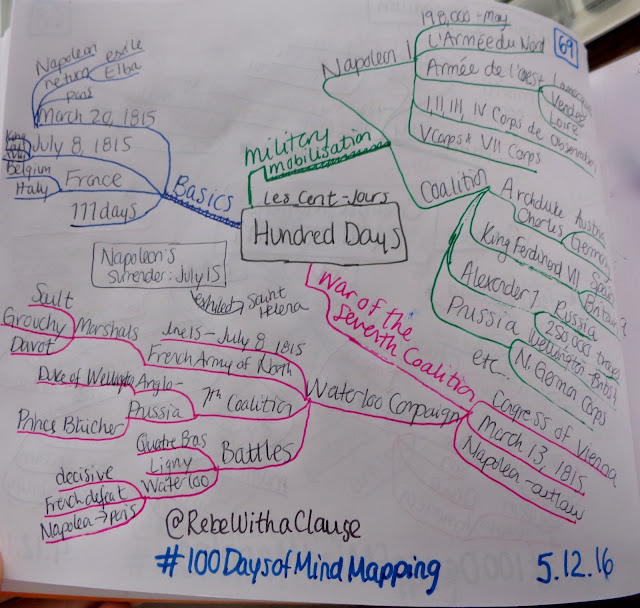 69
Les Cent-Jours
Hundred Days
Basics
Napoleon
return
exile
Elba
March 20, 1815
July 8, 1815
King
France
Belgium
Italy
111 days
Napoleon's
surrender: July 15
exiled
Saint
Helena
military
mobilisation
Napoleon I
198,000 - May
L'Armée du Nord
Armée de l'Ouest
Lamarque
Vendée
Loire
I, II, III, IV Corps de Observation
V Corps & VII Corps
Coalition
Archduke
Charles
Austria
German
King Ferdinand VII
Spain
Alexander I
Russia
250,000
Prussia
Wellington
N. German Corps
etc...
War of the
Seventh Coalition
Waterloo Campaign
Congress of Vienna
March 13, 1815
Napoleon - outlaw
15 - July 8, 1815
French Army of North
Marshals
Sult
Grouchy
Davot
7th Coalition
Anglo-
Duke of Wellington
Prussia
Blücher
Battles
Quatre Bras
Ligny
Waterloo
decisive
French defeat
Napoleon →
@RebeWithaClause
#100DaysofMindMapping
5.12.16